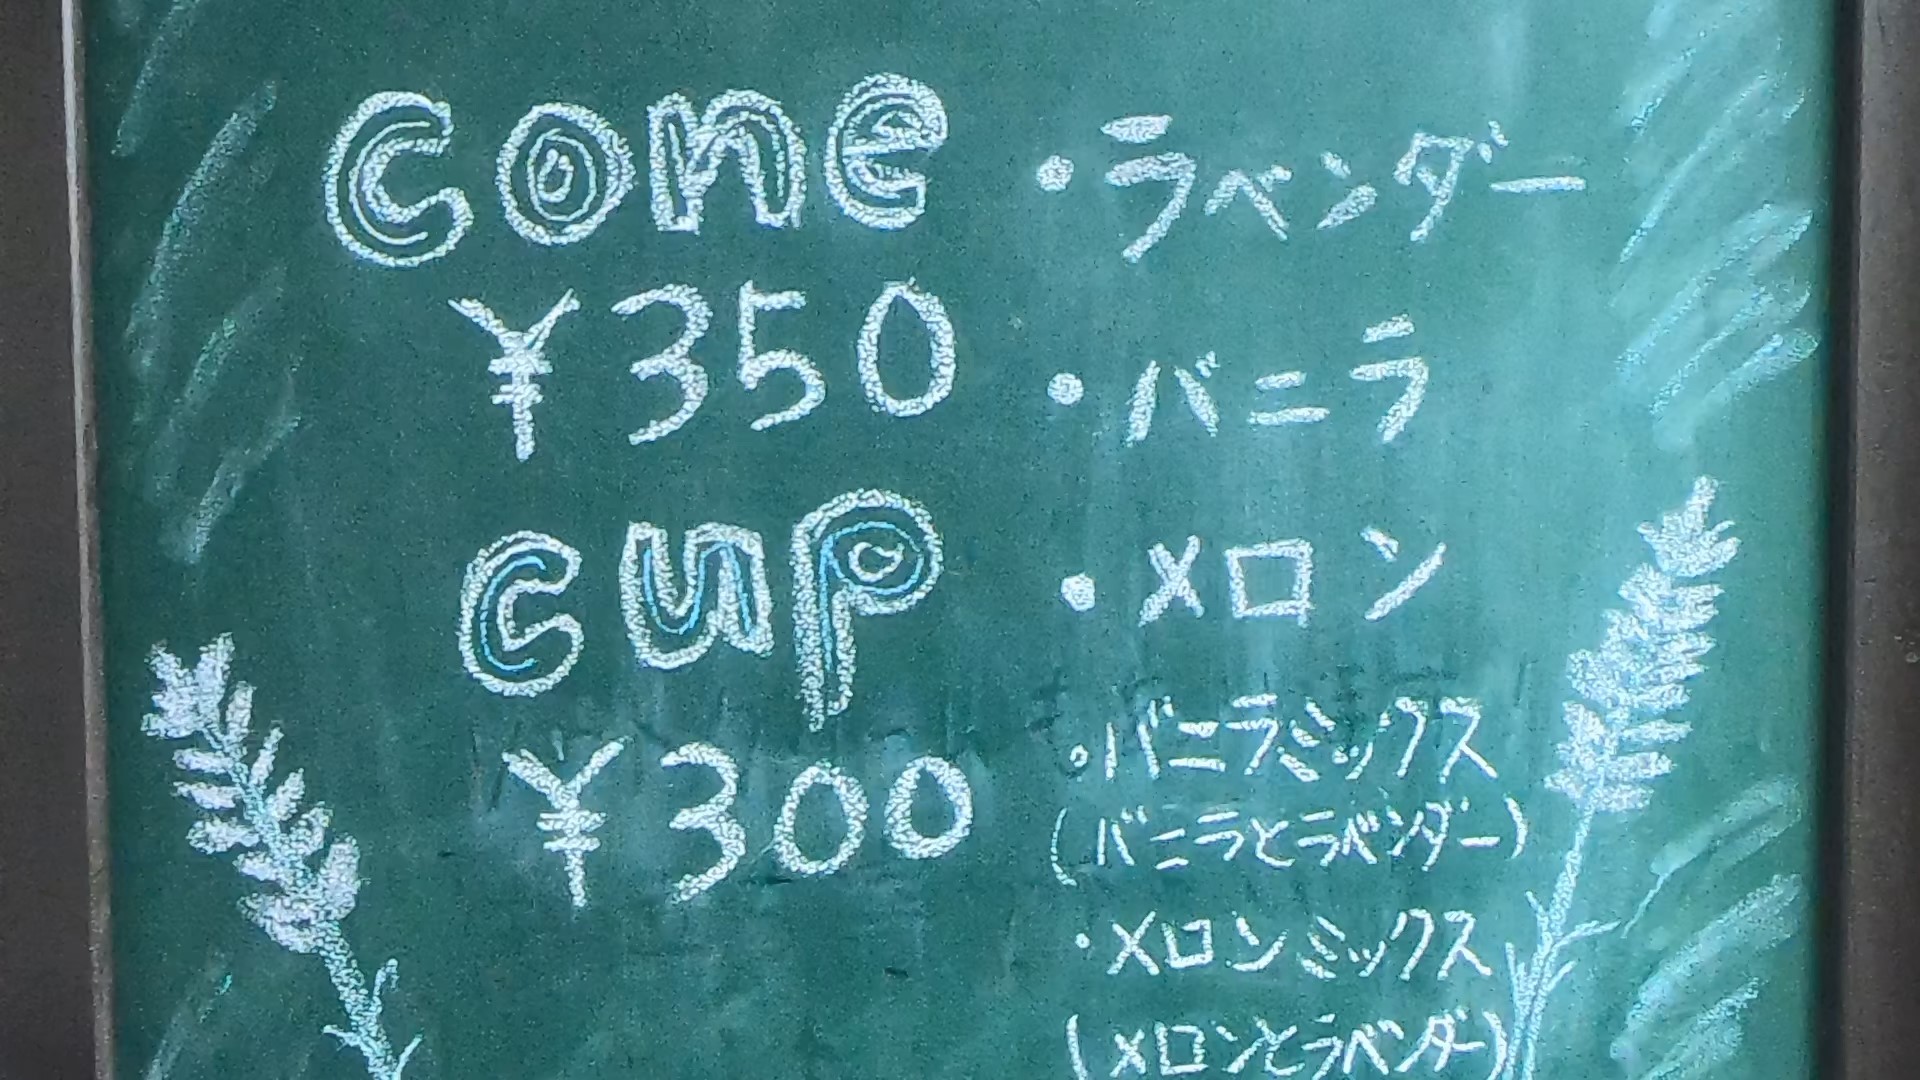 cone
¥350
cup
¥300
・ラベンダー
・バニラ
・メロン
・バニラミックス
(バニラとラベンダー)
・メロンミックス
(メロンとラベンダー)